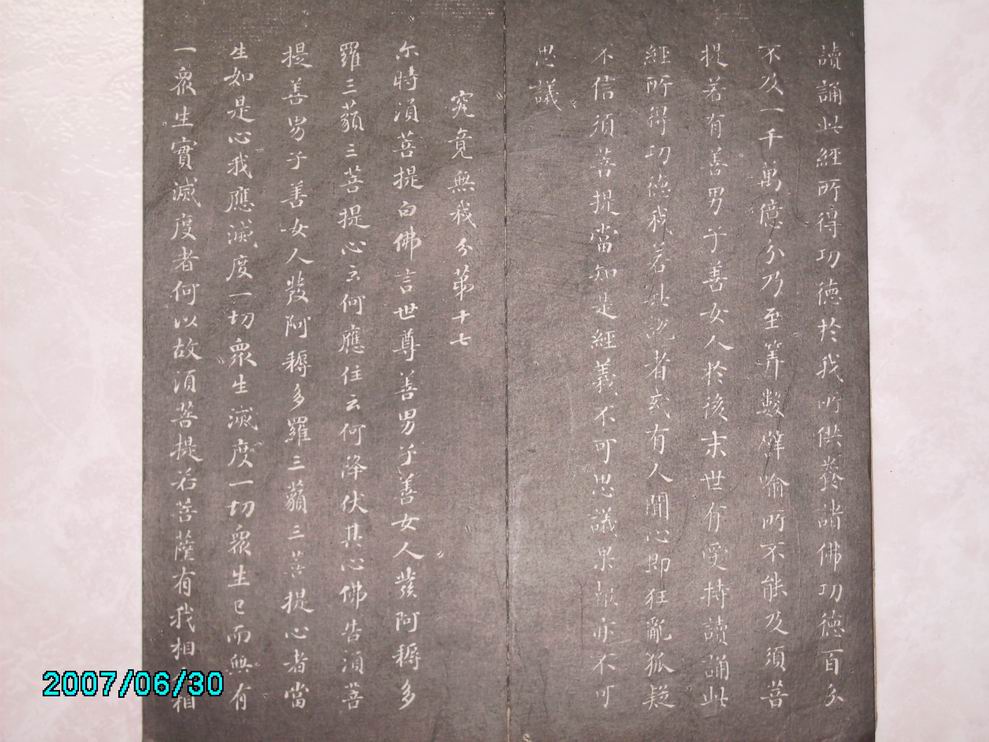 讀誦此經所得功德於我所供養諸佛功德百分
不及一千萬億分乃至筭數譬喻所不能及須菩
提若有善男子善女人於後末世有受持讀誦此
經所得功德我若具說者或有人聞心即狂亂狐疑
不信須菩提當知是經義不可思議果報亦不可
思議
究竟無我分第十七
尒時須菩提白佛言世尊善男子善女人發阿耨多
羅三藐三菩提心云何應住云何降伏其心佛告須菩
提善男子善女人發阿耨多羅三藐三菩提心者當
生如是心我應滅度一切眾生滅度一切眾生已而無有
一眾生實滅度者何以故須菩提若菩薩有我相人相
2007/06/30